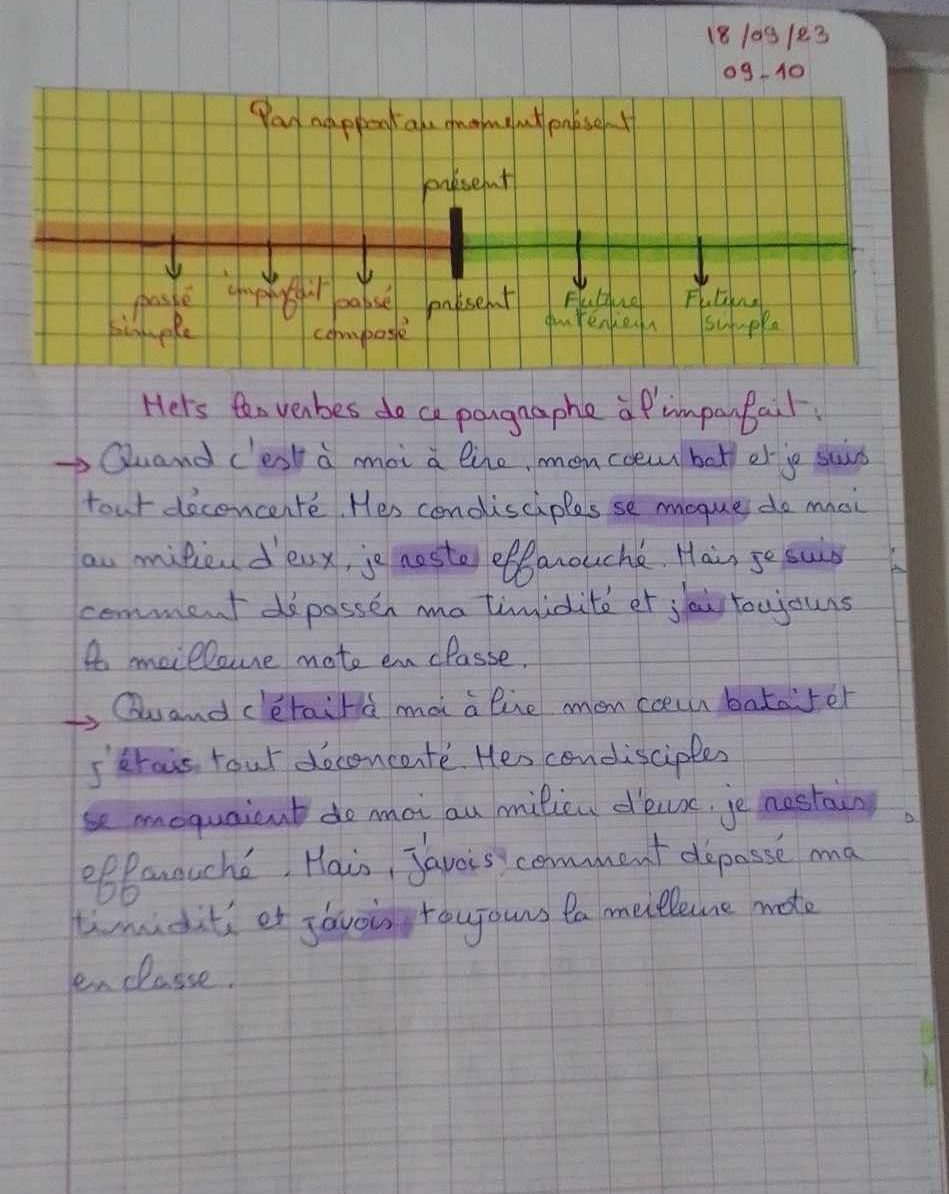 18/09/23
09-10
Par rapport au moment présent
présent
passé simple
imparfait
passé composé
présent
Future antérieur
Future simple
Mets les verbes de ce pargraphe à l'imparfait.
→ Quand c'est à moi à lire, mon coeur bat et je suis
tout déconcerté. Mes condisciples se moque de moi
au milieu d'eux, je reste effarouché. Mais je suis
comment dépassér ma timidité et j'ai toujours
la meilleure note en classe.
→ Quand c'était à moi à lire mon coeur batait et
j'étais tout déconcerté. Mes condisciples
se moquaient de moi au milieu d'eux, je restais
effarouché. Mais, J'avais comment dépassé ma
timidité et j'avais toujours la meilleure note
en classe.